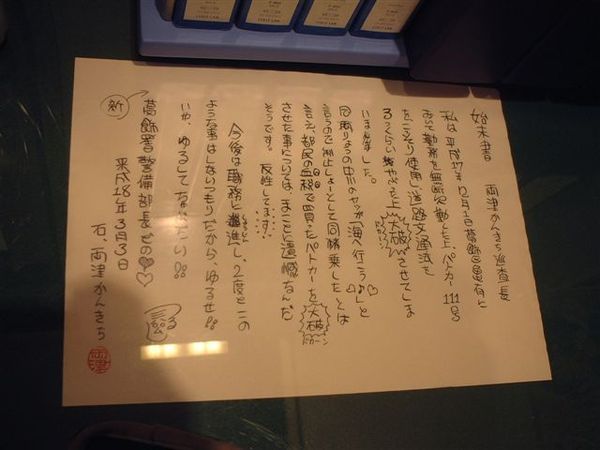 始末書　両津かんきち巡査長
私は平成17年12月1日葛飾区亀有に
おいて勤務を無断欠勤した上、パトカー111号
をこっそり使用し道路交通法を
ろっくらいやぶった上大破させてしま
いまました。
同期りょうの中川のヤツが「海へ行こう♪」と
言うので阻止しょーとして同乗したとは
言え、都民の血税で買ったパトカーを大破ドカーン
させた事については、まことに遺憾なんだ
そうです。反性してます!!
今後は職務に邁進し、2度とこの
ような事はしないつもりだから、ゆるせ!!
いや、ゆるして下さい!!
新
葛飾署警備部長どの♡♡
平成18年3月3日
右、両津かんきち
両津